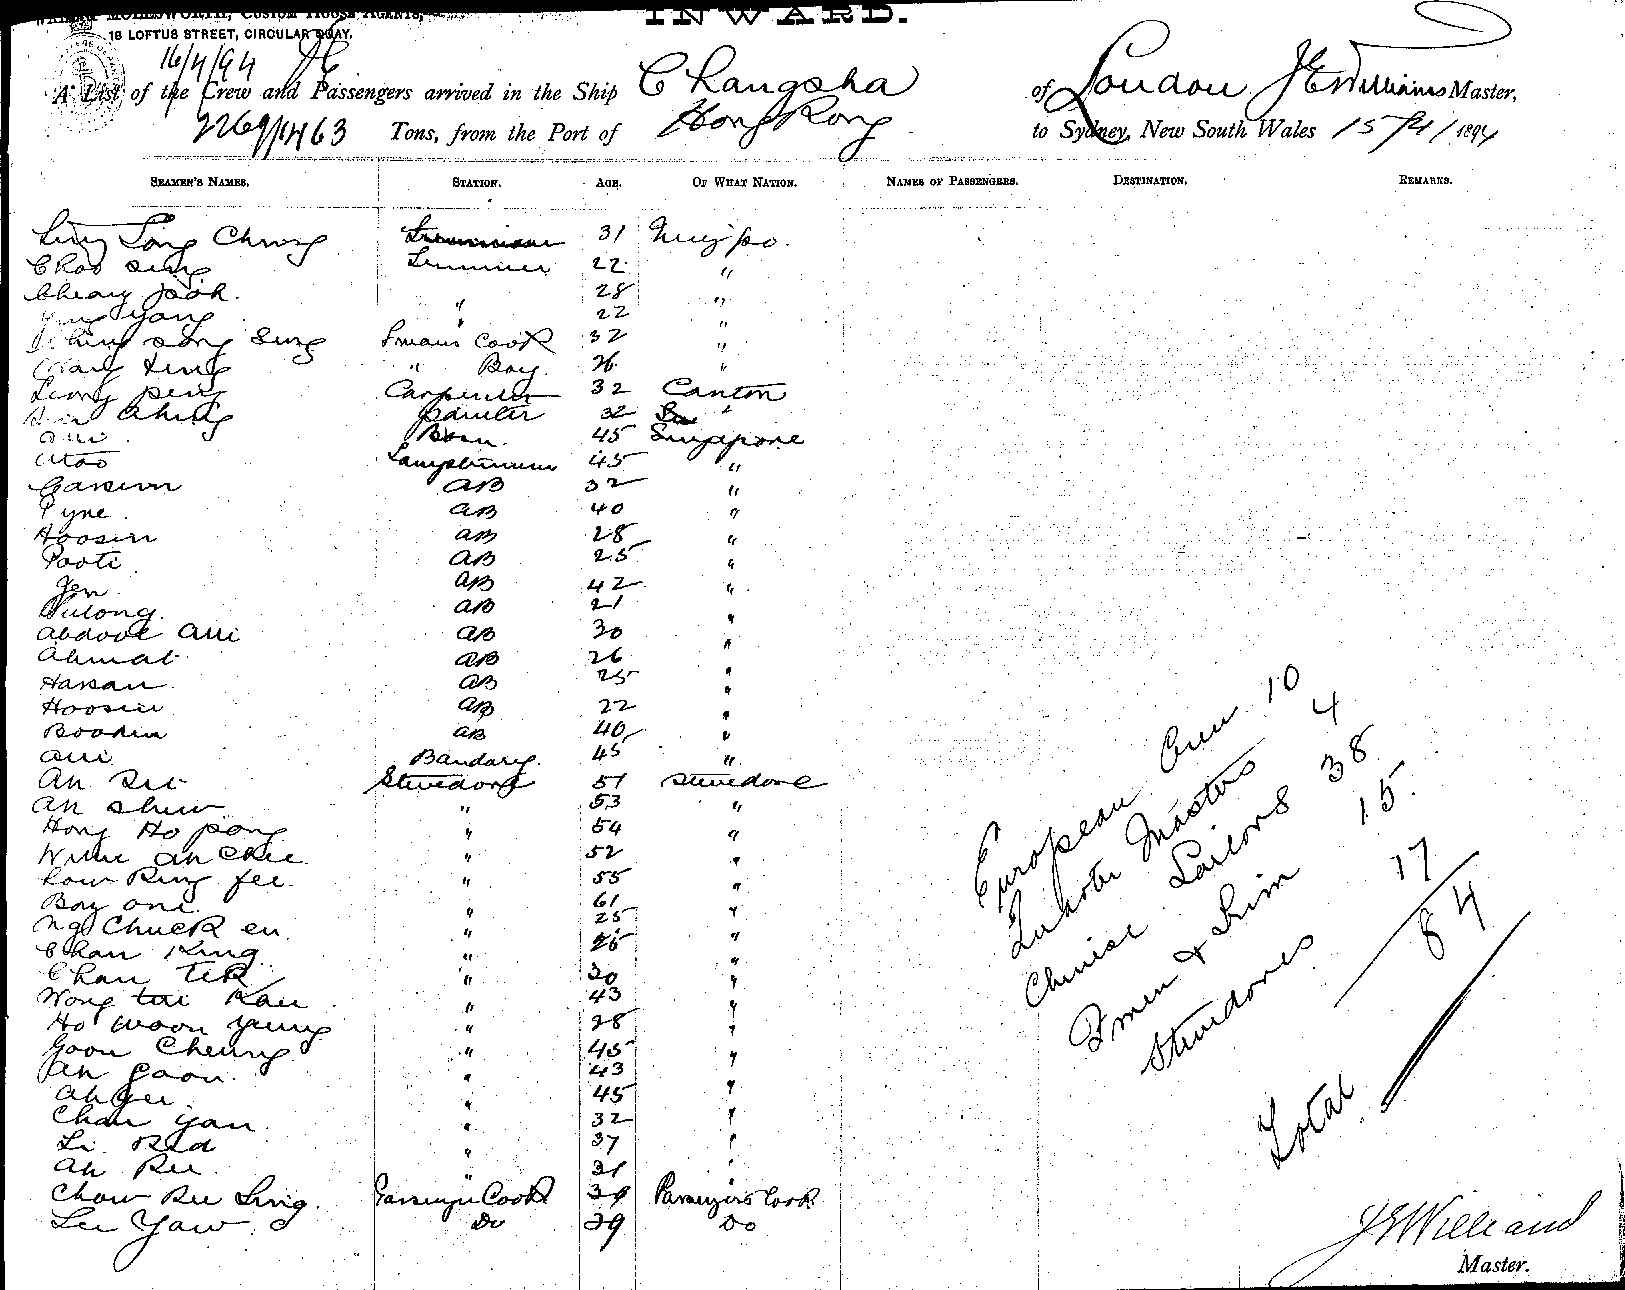 INWARD.
MOLESWORTH, CUSTOM HOUSE AGENTS,
16 LOFTUS STREET, CIRCULAR QUAY.
16/4/94
A List of the Crew and Passengers arrived in the Ship Changsha of London J E Williams Master,
2269/1463 Tons, from the Port of Hong Kong to Sydney, New South Wales 15/4/1894
SEAMEN'S NAMES. STATION. AGE. OF WHAT NATION. NAMES OF PASSENGERS. DESTINATION. REMARKS.
Ling Song Chong 31 Ningpo.
Choo Sing Trimmer 22 "
Cheang 28 "
Yang " 22 "
Song Sung Firemans Cook 32 "
" Boy. 26 "
Leong Peng Carpenter 32 Canton
Ching Painter 32 "
Alli Bosn. 45 Singapore
Atao Lamptrimmer 45 "
AB 32 "
Pyne. AB 40 "
Hoosin AB 28 "
Pooti AB 25 "
Jen AB 42 "
Bulong. AB 21 "
Abdool Alli AB 30 "
Ahmat AB 26 "
Hassan AB 25 "
Hoosin AB 22 "
Boodin AB 40 "
Alli Bandary. 45 "
Ah Sit Stevedore 51 Stevedore
Ah Shew " 53 "
Hong Ho pong " 54 "
Ah Chee " 52 "
King fee. " 55 "
Boy one. " 61 "
Ng Chuck en. " 25 "
Chan King " 26 "
Chan Tek " 30 "
Wong tai Kau " 43 "
Ho Woon Yung " 28 "
Goon Cheung " 45 "
Ah Gaon. " 43 "
Ah Gee. " 45 "
Chan Yan " 32 "
Li Bad " 37 "
Ah Kee " 31 "
Chow Kee Ling. Passenger Cook 39 Passengers Cook
Lee Yaw Do 29 Do
European Crew 10
Masters 4
Chinese Sailors 38
Fmen & Trim 15.
Stevedores 17
Total 84
J E Williams
Master.